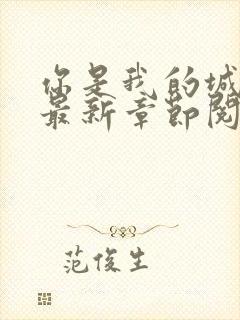 你是我的城
最新章节阅
范俊生